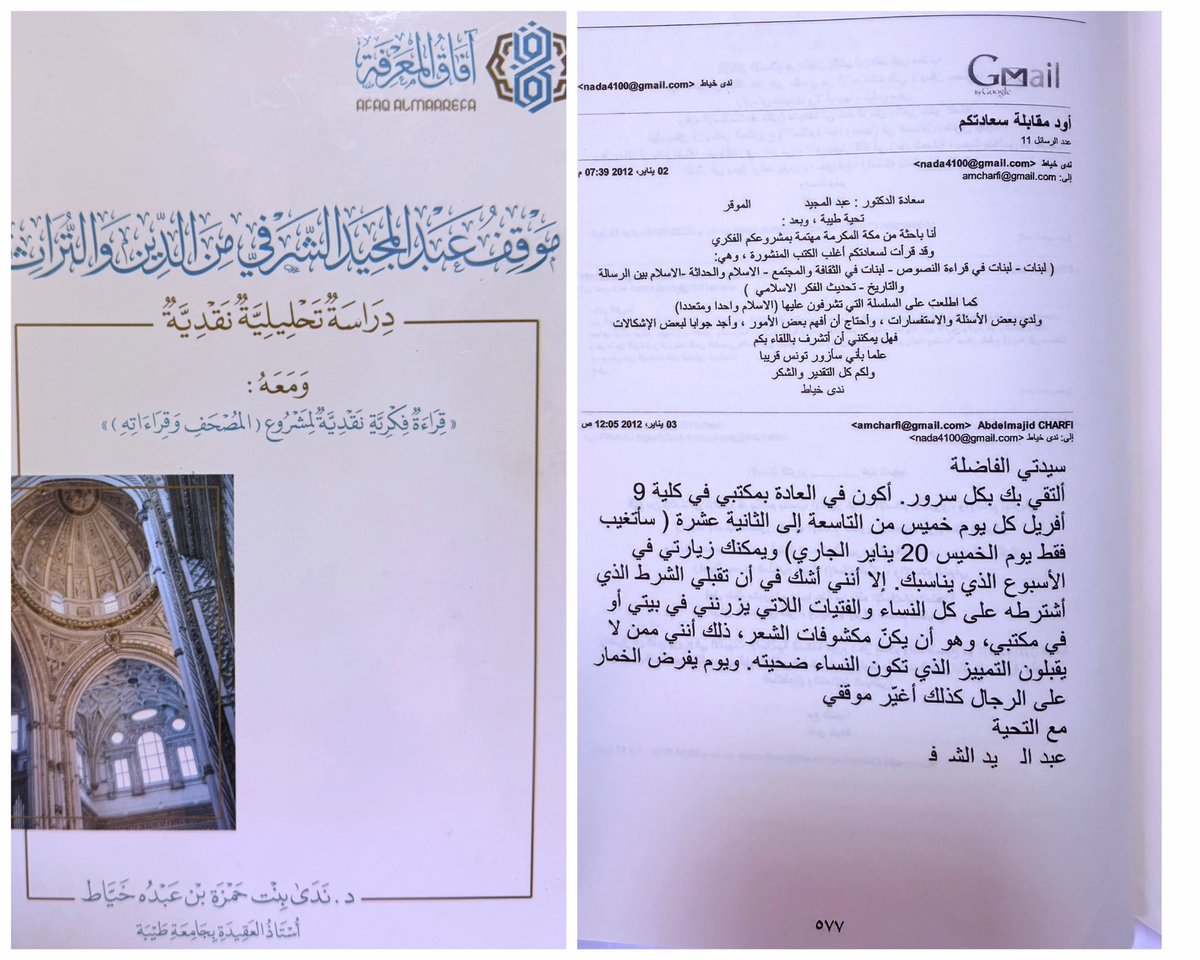 آفاق المعرفة
AFAQ ALMAAREFA
مَوْقِفُ عَبْدِ المَجِيدِ الشَّرَفِيِّ مِنَ الدِّينِ وَالتُّرَاثِ
دِرَاسَةٌ تَحْلِيلِيَّةٌ نَقْدِيَّةٌ
وَمَعَهُ :
« قِرَاءَةٌ فِكْرِيَّةٌ نَقْدِيَّةٌ لِمَشْرُوعِ (المُصْحَفِ وَقِرَاءَاتِهِ) »
د. نَدَى بِنْت حَمْزَة بْن عَبْدُه خَيَّاط
أُسْتَاذُ العَقِيدَةِ بِجَامِعَةِ طَيْبَة
Gmail
by Google
ندى خياط <nada4100@gmail.com>
أود مقابلة سعادتكم
عدد الرسائل 11
ندى خياط <nada4100@gmail.com> 02 يناير، 2012 07:39 م
إلى: amcharfi@gmail.com
سعادة الدكتور : عبد المجيد الموقر
تحية طيبة ، وبعد :
أنا باحثة من مكة المكرمة مهتمة بمشروعكم الفكري
وقد قرأت لسعادتكم أغلب الكتب المنشورة ، وهي:
( لبنات - لبنات في قراءة النصوص - لبنات في الثقافة والمجتمع - الاسلام والحداثة -الاسلام بين الرسالة
والتاريخ - تحديث الفكر الاسلامي )
كما اطلعت على السلسلة التي تشرفون عليها (الاسلام واحدا ومتعددا)
ولدي بعض الأسئلة والاستفسارات ، وأحتاج أن أفهم بعض الأمور ، وأجد جوابا لبعض الإشكالات
فهل يمكنني أن أتشرف باللقاء بكم
علما بأني سأزور تونس قريبا
ولكم كل التقدير والشكر
ندى خياط
Abdelmajid CHARFI <amcharfi@gmail.com> 03 يناير، 2012 12:05 ص
إلى: ندى خياط <nada4100@gmail.com>
سيدتي الفاضلة
ألتقي بك بكل سرور. أكون في العادة بمكتبي في كلية 9
أفريل كل يوم خميس من التاسعة إلى الثانية عشرة ( سأتغيب
فقط يوم الخميس 20 يناير الجاري) ويمكنك زيارتي في
الأسبوع الذي يناسبك. إلا أنني أشك في أن تقبلي الشرط الذي
أشترطه على كل النساء والفتيات اللاتي يزرنني في بيتي أو
في مكتبي، وهو أن يكنّ مكشوفات الشعر، ذلك أنني ممن لا
يقبلون التمييز الذي تكون النساء ضحيته. ويوم يفرض الخمار
على الرجال كذلك أغيّر موقفي
مع التحية
عبد الـ يد الشـ فـ
٥٧٧